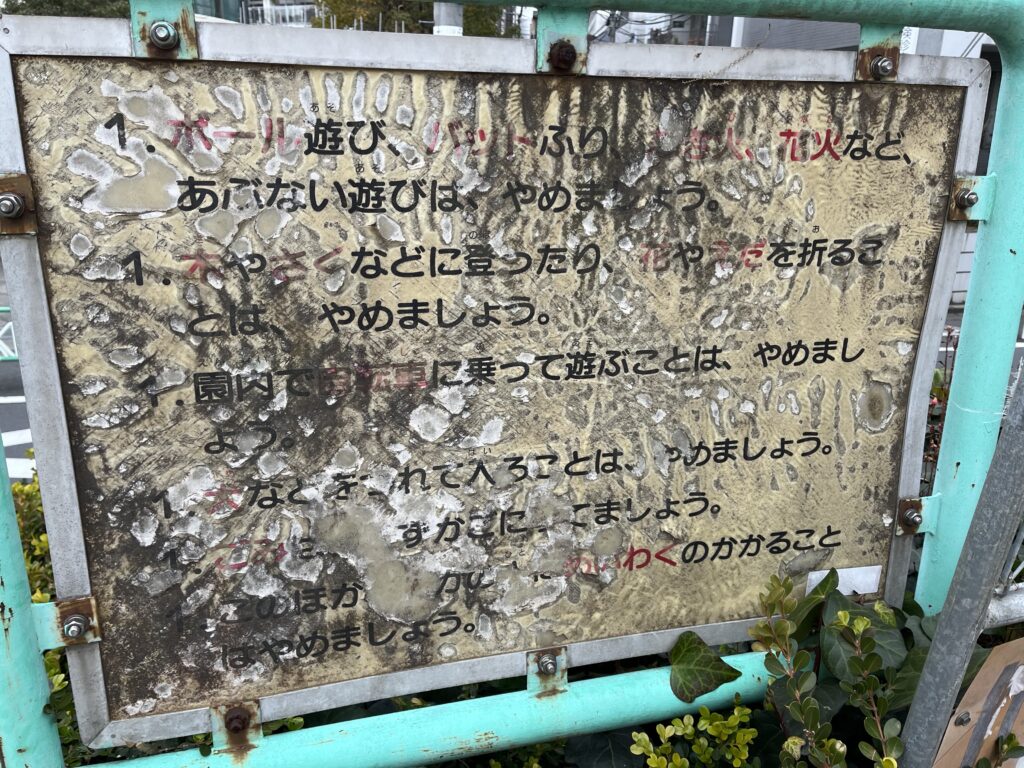 1. ボール遊び、バットふり、たき火、花火など、
あぶない遊びは、やめましょう。
1. 木やさくなどに登ったり、花やえだを折るこ
とは、やめましょう。
1. 園内で自転車に乗って遊ぶことは、やめまし
ょう。
1. 犬など を れて入ることは、やめましょう。
1. ごみ ずかごに てましょう。
1. このほか めいわくのかかること
はやめましょう。